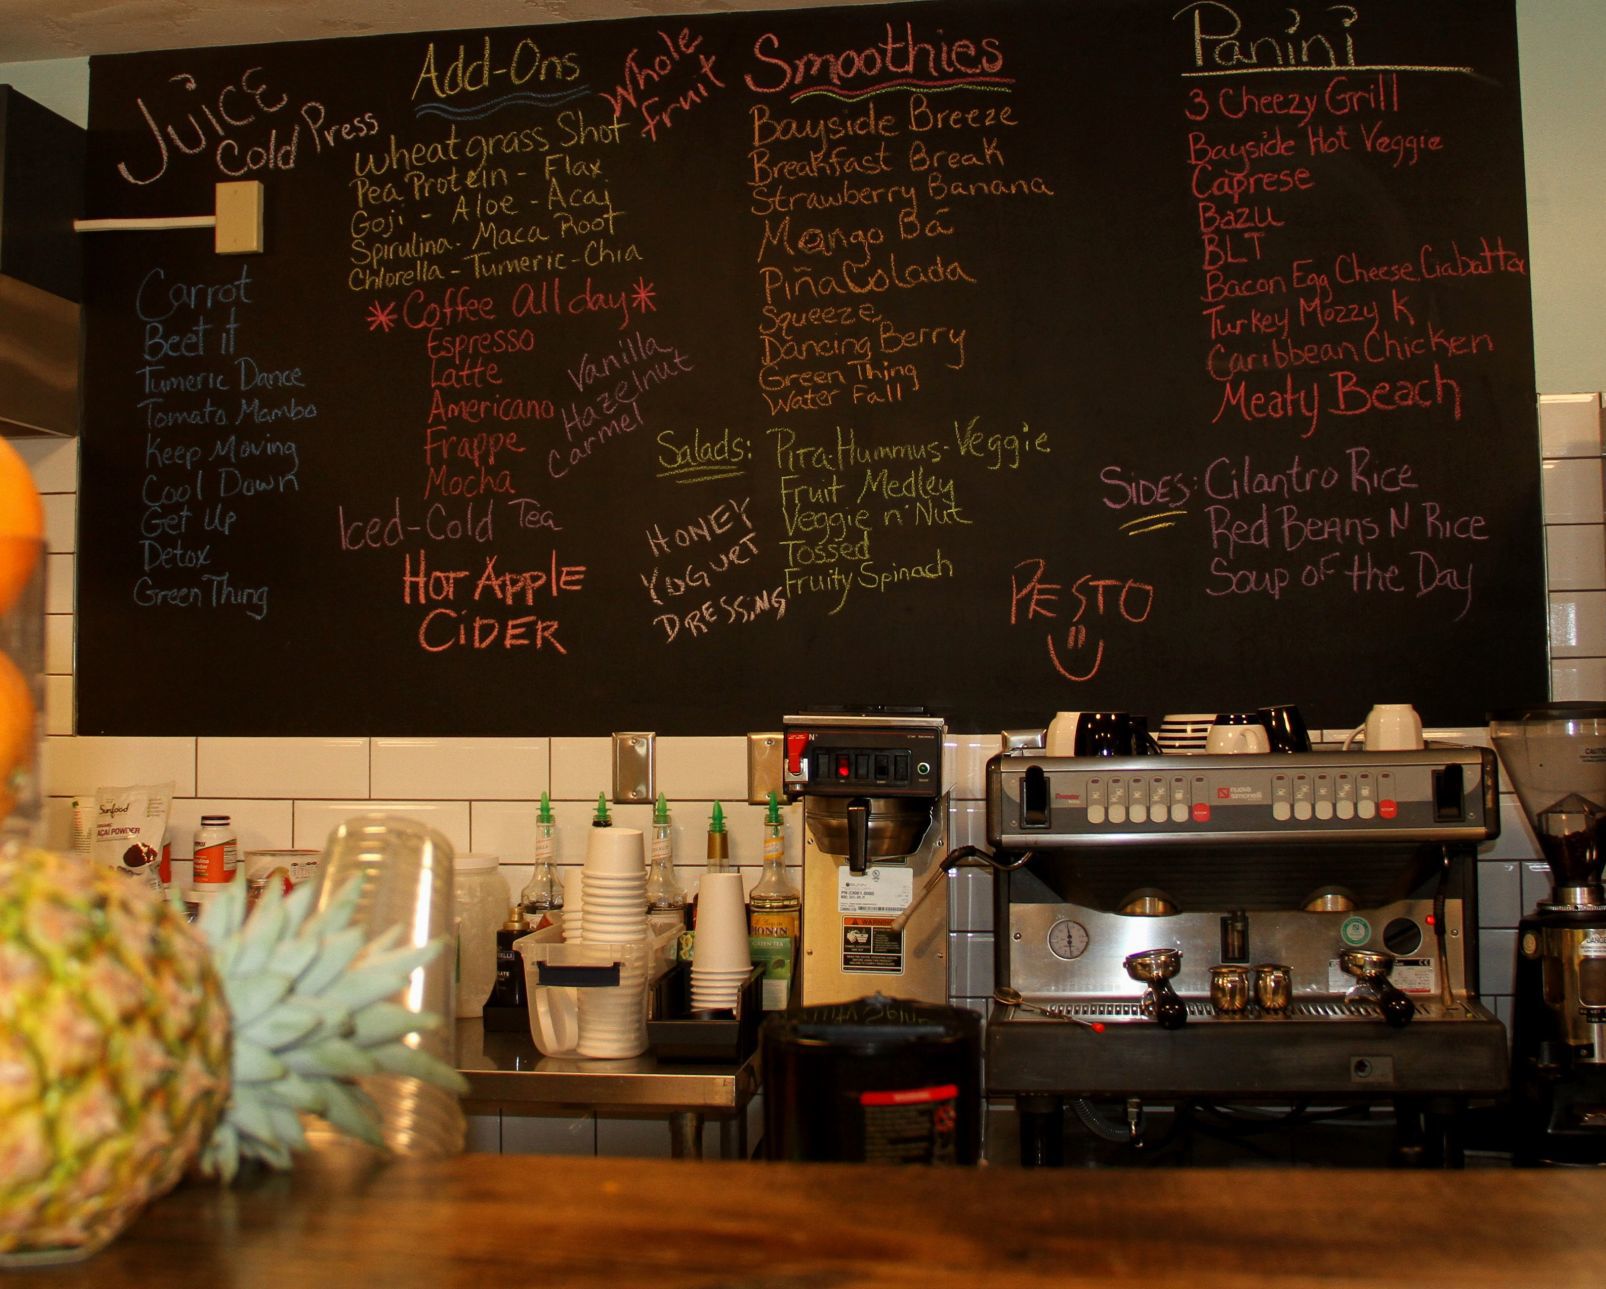 Juice
Cold Press
Carrot
Beet it
Tumeric Dance
Tomato Mambo
Keep Moving
Cool Down
Get Up
Detox
Green Thing
Add-Ons
Wheatgrass Shot
Pea Protein - Flax
Goji - Aloe - Acai
Spirulina - Maca Root
Chlorella - Tumeric - Chia
*Coffee All day*
Espresso
Latte
Americano
Frappe
Mocha
Vanilla
Hazelnut
Carmel
Iced-Cold Tea
Hot Apple
Cider
Whole
fruit
Smoothies
Bayside Breeze
Breakfast Break
Strawberry Banana
Mango Bá
Piña Colada
Squeeze
Dancing Berry
Green Thing
Water Fall
Salads: Pita-Hummus-Veggie
Fruit Medley
Veggie n' Nut
Tossed
Fruity Spinach
Honey
Yogurt
Dressing
Panini
3 Cheezy Grill
Bayside Hot Veggie
Caprese
Bazu
BLT
Bacon Egg Cheese Ciabatta
Turkey Mozzy K
Caribbean Chicken
Meaty Beach
Sides: Cilantro Rice
Red Beans N Rice
Soup of the Day
Pesto
Sunfood
ACAI POWDER
MONIN
GREEN TEA
nuova
simonelli